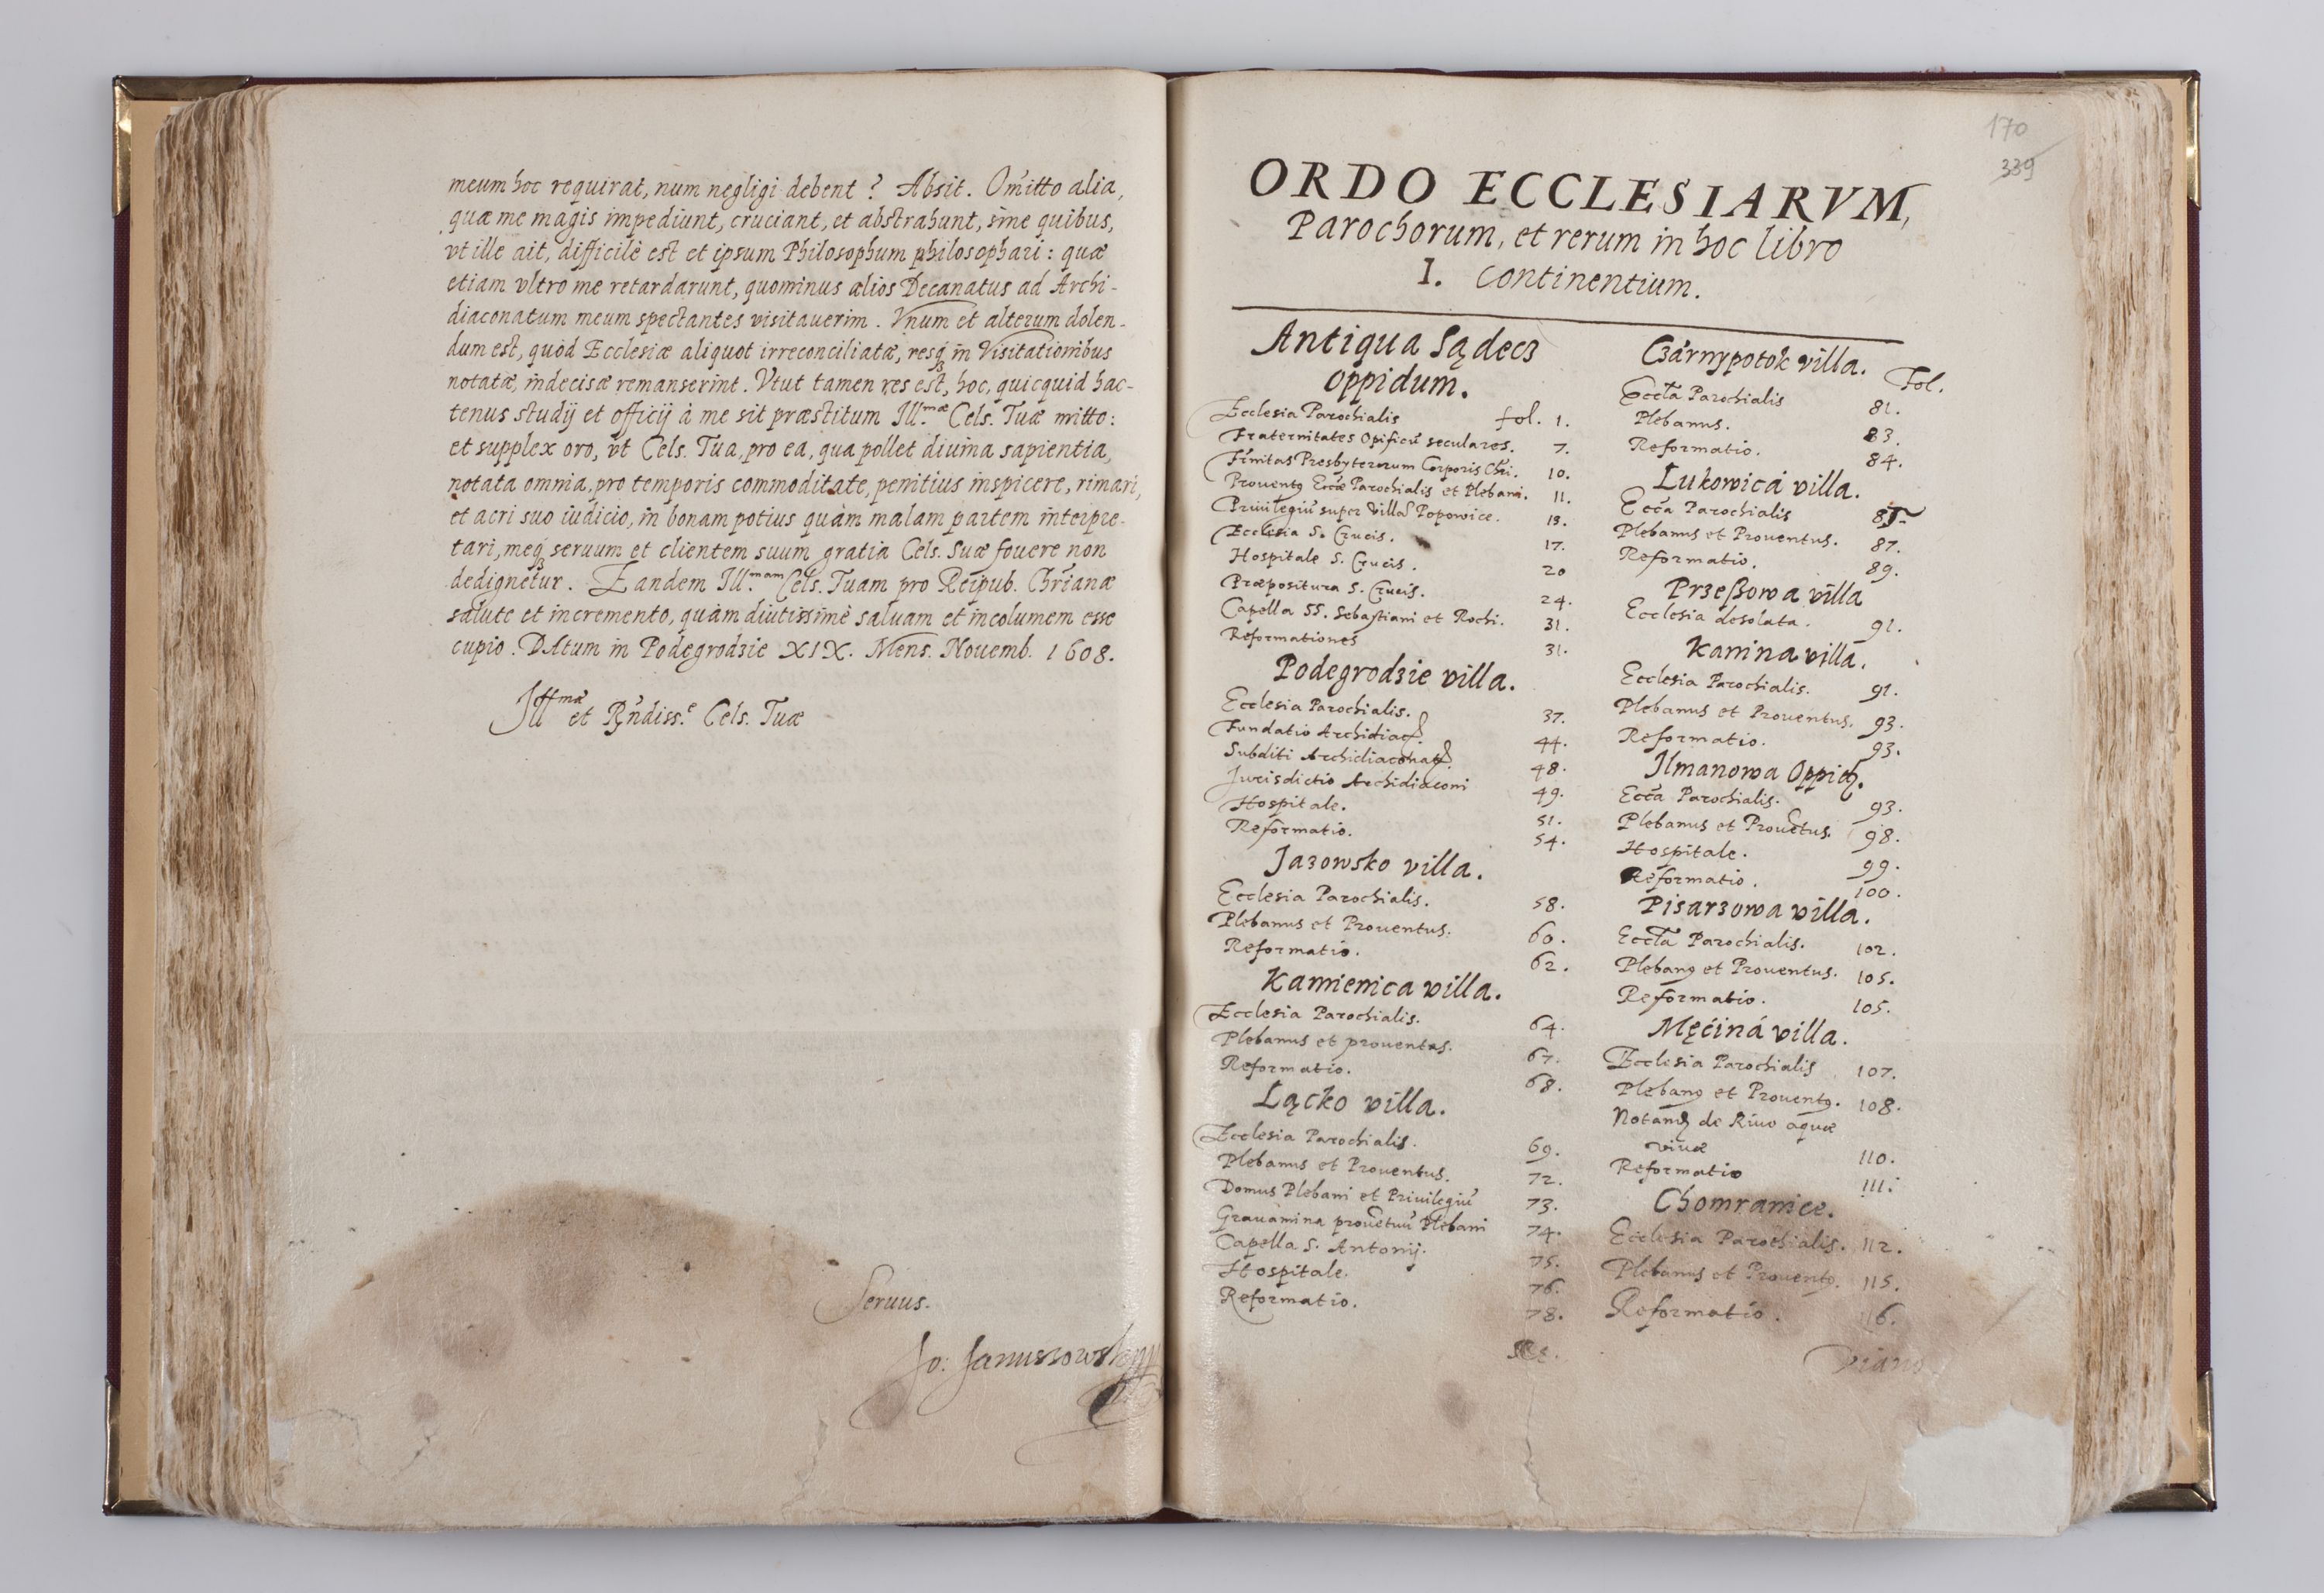 meum hoc requirat, num negligi debent? Absit. Omitto alia,
quæ me magis impediunt, cruciant, et abstrahunt, sine quibus,
vt ille ait, difficilè est et ipsum Philosophum philosophari: quæ
etiam vltro me retardarunt, quominus alios Decanatus ad Archi-
diaconatum meum spectantes visitauerim. Vnum et alterum dolen-
dum est, quòd Ecclesiæ aliquot irreconciliatæ, resq́ꝫ in Visitationibus
notatæ, indecisæ remanserint. Vtut tamen res est, hoc, quicquid hac-
tenus studij et officij à me sit præstitum Ill.mæ Cels. Tuæ mitto:
et supplex oro, vt Cels. Tua, pro ea, qua pollet diuina sapientia,
notata omnia, pro temporis commoditate, penitius inspicere, rimari,
et acri suo iudicio, in bonam potius quàm malam partem interpre-
tari, meq́ꝫ seruum et clientem suum gratia Cels. Suæ fouere non
dedignetur. Eandem Ill.mam Cels. Tuam pro Reipub. Chr̃ianæ
salute et incremento, quàm diutissimè saluam et incolumem esse
cupio. DAtum in Podegrodzie XIX. Mens. Nouemb. 1608.
Illmæ et Rṇ̃diss.e Cels. Tuæ
Seruus.
Jo: Januszowskj
170
339
ORDO ECCLESIARVM,
Parochorum, et rerum in hoc libro
I. continentium.
Antiqua Sądecz
oppidum.
Ecclesia Parochialis fol. 1.
Fraternitates Opificũ seculares. 7.
Fr̃nitas Presbyterorum Corporis Chr̃i. 10.
Prouentꝰ Eccæ Parochialis et Plebani. 11.
Priuilegiũ super villã Popowice. 13.
Ecclesia S. Crucis. 17.
Hospitale S. Crucis. 20
Præpositura S. Crucis. 24.
Capella SS. Sebastiani et Rochi. 31.
Reformationes 31.
Podegrodzie villa.
Ecclesia Parochialis. 37.
Fundatio Archidiacꝭ. 44.
Subditi Archidiaconatꝭ. 48.
Jurisdictio Archidiaconi 49.
Hospitale. 51.
Reformatio. 54.
Jazowsko villa.
Ecclesia Parochialis. 58.
Plebanus et Prouentus. 60.
Reformatio. 62.
Kamienica villa.
Ecclesia Parochialis. 64.
Plebanus et prouentus. 67.
Reformatio. 68.
Łącko villa.
Ecclesia Parochialis. 69.
Plebanus et Prouentus. 72.
Domus Plebani et Priuilegiũ 73.
Grauamina prouẽtuũ Plebani 74.
Capella S. Antonij. 75.
Hospitale. 76.
Reformatio. 78.
Czárnypotok villa. Fol.
Eccl̃a Parochialis 81.
Plebanus. 83.
Reformatio. 84.
Łukowicá villa.
Ecc̃a Parochialis 85.
Plebanus et Prouentus. 87.
Reformatio. 89.
Przeßowa villa
Ecclesia desolata. 91.
Kanina villa.
Ecclesia Parochialis. 91.
Plebanus et Prouentus. 93.
Reformatio. 93.
Ilmanowa Oppid.
Ecc̃a Parochialis. 93.
Plebanus et Prouẽtus. 98.
Hospitale. 99.
Reformatio. 100.
Pisarzowa villa.
Eccl̃a Parochialis. 102.
Plebanꝰ et Prouentus. 105.
Reformatio. 105.
Męćiná villa.
Ecclesia Parochialis 107.
Plebanꝰ et Prouentꝰ. 108.
Notand de Riuo aquæ
viuæ 110.
Reformatio 111.
Chomranice.
Ecclesia Parochialis. 112.
Plebanus et Prouentꝰ. 115.
Reformatio. 116.